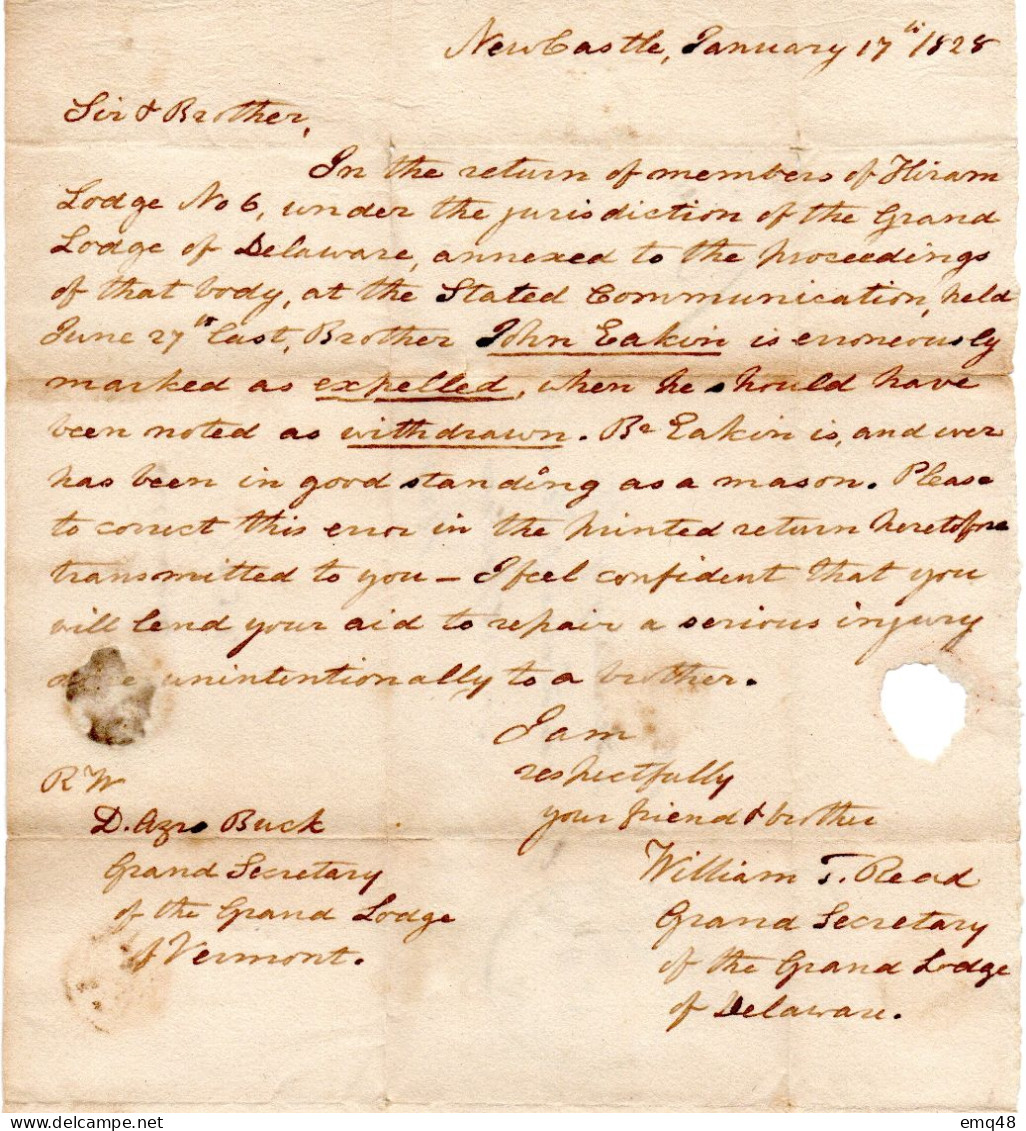 NewCastle, January 17th 1828
Sir & Brother,
In the return of members of Hiram
Lodge No 6, under the jurisdiction of the Grand
Lodge of Delaware, annexed to the proceedings
of that body, at the Stated Communication, held
June 27th last, Brother John Eakin is erroneously
marked as expelled, when he should have
been noted as withdrawn. Br Eakin is, and ever
has been in good standing as a mason. Please
to correct this error in the printed return heretofore
transmitted to you – I feel confident that you
will lend your aid to repair a serious injury
unintentionally to a brother.
I am
respectfully
your friend & brother
William T. Read
Grand Secretary
of the Grand Lodge
of Delaware.
R W
D. Azro Buck
Grand Secretary
of the Grand Lodge
of Vermont.
delcampe.net
emq48